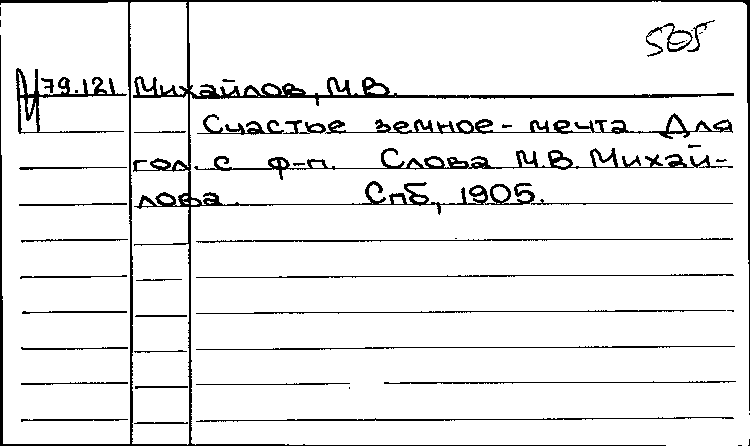 505
79.121 Михайлов, М.В.
Счастье земное - мечта Для
гол. с ф-п. Слова М.В. Михай-
лова. Спб, 1905.